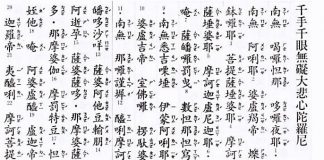 千手千眼無礙大悲心陀羅尼
南無 喝囉怛那 哆囉夜耶
南無 阿唎耶 婆盧羯帝 爍
鉢囉耶 菩提薩埵婆耶 摩訶
薩埵婆耶 摩訶迦盧尼迦耶
唵 薩皤囉罰曳 數怛那怛寫
南無悉吉 埵 伊蒙阿唎耶
婆盧吉帝 室佛 楞馱婆
南無 那囉謹墀 醯唎摩訶
皤哆沙咩 薩婆阿他豆輸朋
阿逝孕 薩婆薩哆 那摩婆薩
哆 那摩婆伽 摩罰特豆 怛
姪他 唵 阿婆盧醯 盧迦帝
迦羅帝 夷醯唎 摩訶菩